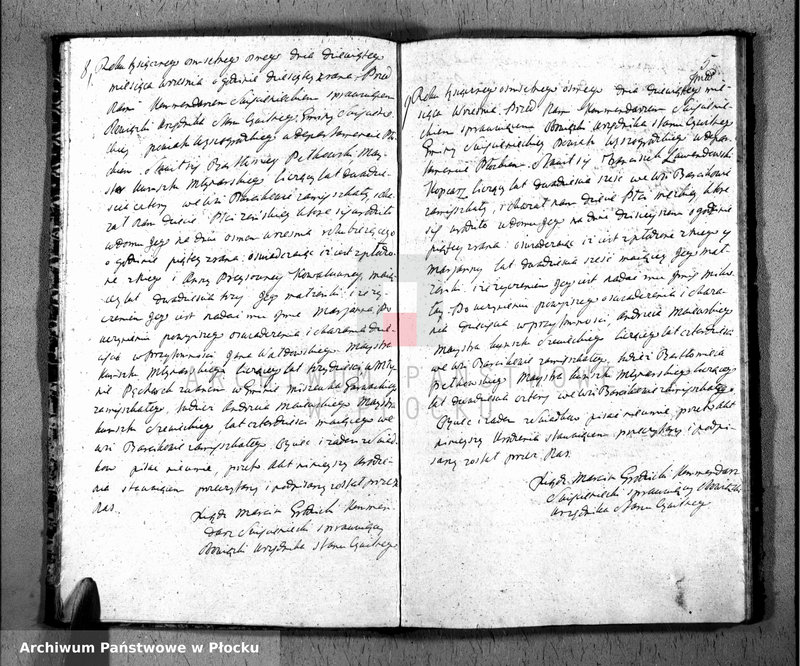 8. Roku tysiącznego osmsetnego osmego dnia dziewiątego
miesiąca września o godzinie dziesiątey zrana Przed
Nami Kommendarzem sprawuiącym
Obowiązki Urzędnika Stanu Cywilnego Gminy
Powiatu Wyszogrodzkiego w Departamencie Pło-
ckim Stawił się Bartłomiey Petkowski May-
ster kunsztu Młynarskiego liczący lat dwadzie-
ścia cztery we wsi Barcikowie zamieszkały, oka-
zał Nam dziecie Płci żeńskiey które się urodziło
w domu Jego na dniu osmym września roku bieżącego
o godzinie piątey zrana, oświadczaiąc iż iest spłodzo-
ne z Niego i Anny Kowalowney maią-
cey lat dwadzieścia trzy Jego małżonki i że ży-
czeniem Jego iest nadać mu Imię Maryanna, Po
uczynieniu powyższego oświadczenia i okazaniu dzie-
cięcia w Przytomności Jana Maystra
kunsztu Młynarskiego liczącego lat trzydzieści w Mły-
nie zwanym w Gminie
zamieszkałego, tudzież Andrzeia Maystra
kunsztu lat czterdzieści maiącego we
wsi Barcikowie zamieszkałego. Oyciec i żaden ze świad-
ków pisać nieumie, przeto Akt ninieyszy Urodze-
nia stawaiącym przeczytany i podpisany został przez
Nas.
Xiądz Marcin Grodzicki Kommen-
darz i sprawuiący
Obowiązki Urzędnika Stanu Cywilnego
9 Roku tysiącznego osmsetnego osmego dnia dziewiątego mie-
siąca Września. Przed Nami Kommendarzem
sprawuiącym Obowiązki Urzędnika Stanu Cywilnego
Gminy Powiatu Wyszogrodzkiego w Depar-
tamencie Płockim Stawił się
liczący lat dwadzieścia sześć we wsi Barcikowie
zamieszkały, i okazał nam dziecie Płci męzkiey, które
się urodziło w domu Jego na dniu dzisieyszym o godzinie
piątey zrana, oświadczaiąc iż iest spłodzone z niego y
Maryanny lat dwadzieścia sześć maiącey Jego Mał-
żonki, i że życzeniem Jego iest nadać mu Imię
Po uczynieniu powyższego oświadczenia i okaza-
nia dziecięcia w przytomności, Andrzeia
Maystra kunsztu liczącego lat czterdzieści
we wsi Barcikowie zamieszkałego, tudzież Bartłomieia
Petkowskiego Maystra kunsztu Młynarskiego liczącego
lat dwadzieścia cztery we wsi Barcikowie zamieszkałego.
Oyciec i żaden ze świadków pisać nieumie, przeto Akt
ninieyszy Urodzenia stawaiącym przeczytany i podpi-
sany został przez Nas.
Xiądz Marcin Grodzicki Kommendarz
i sprawuiący Obowiązki
Urzędnika Stanu Cywilnego
ARCHIWUM PAŃSTWOWE
W PŁOCKU
Archiwum Państwowe w Płocku